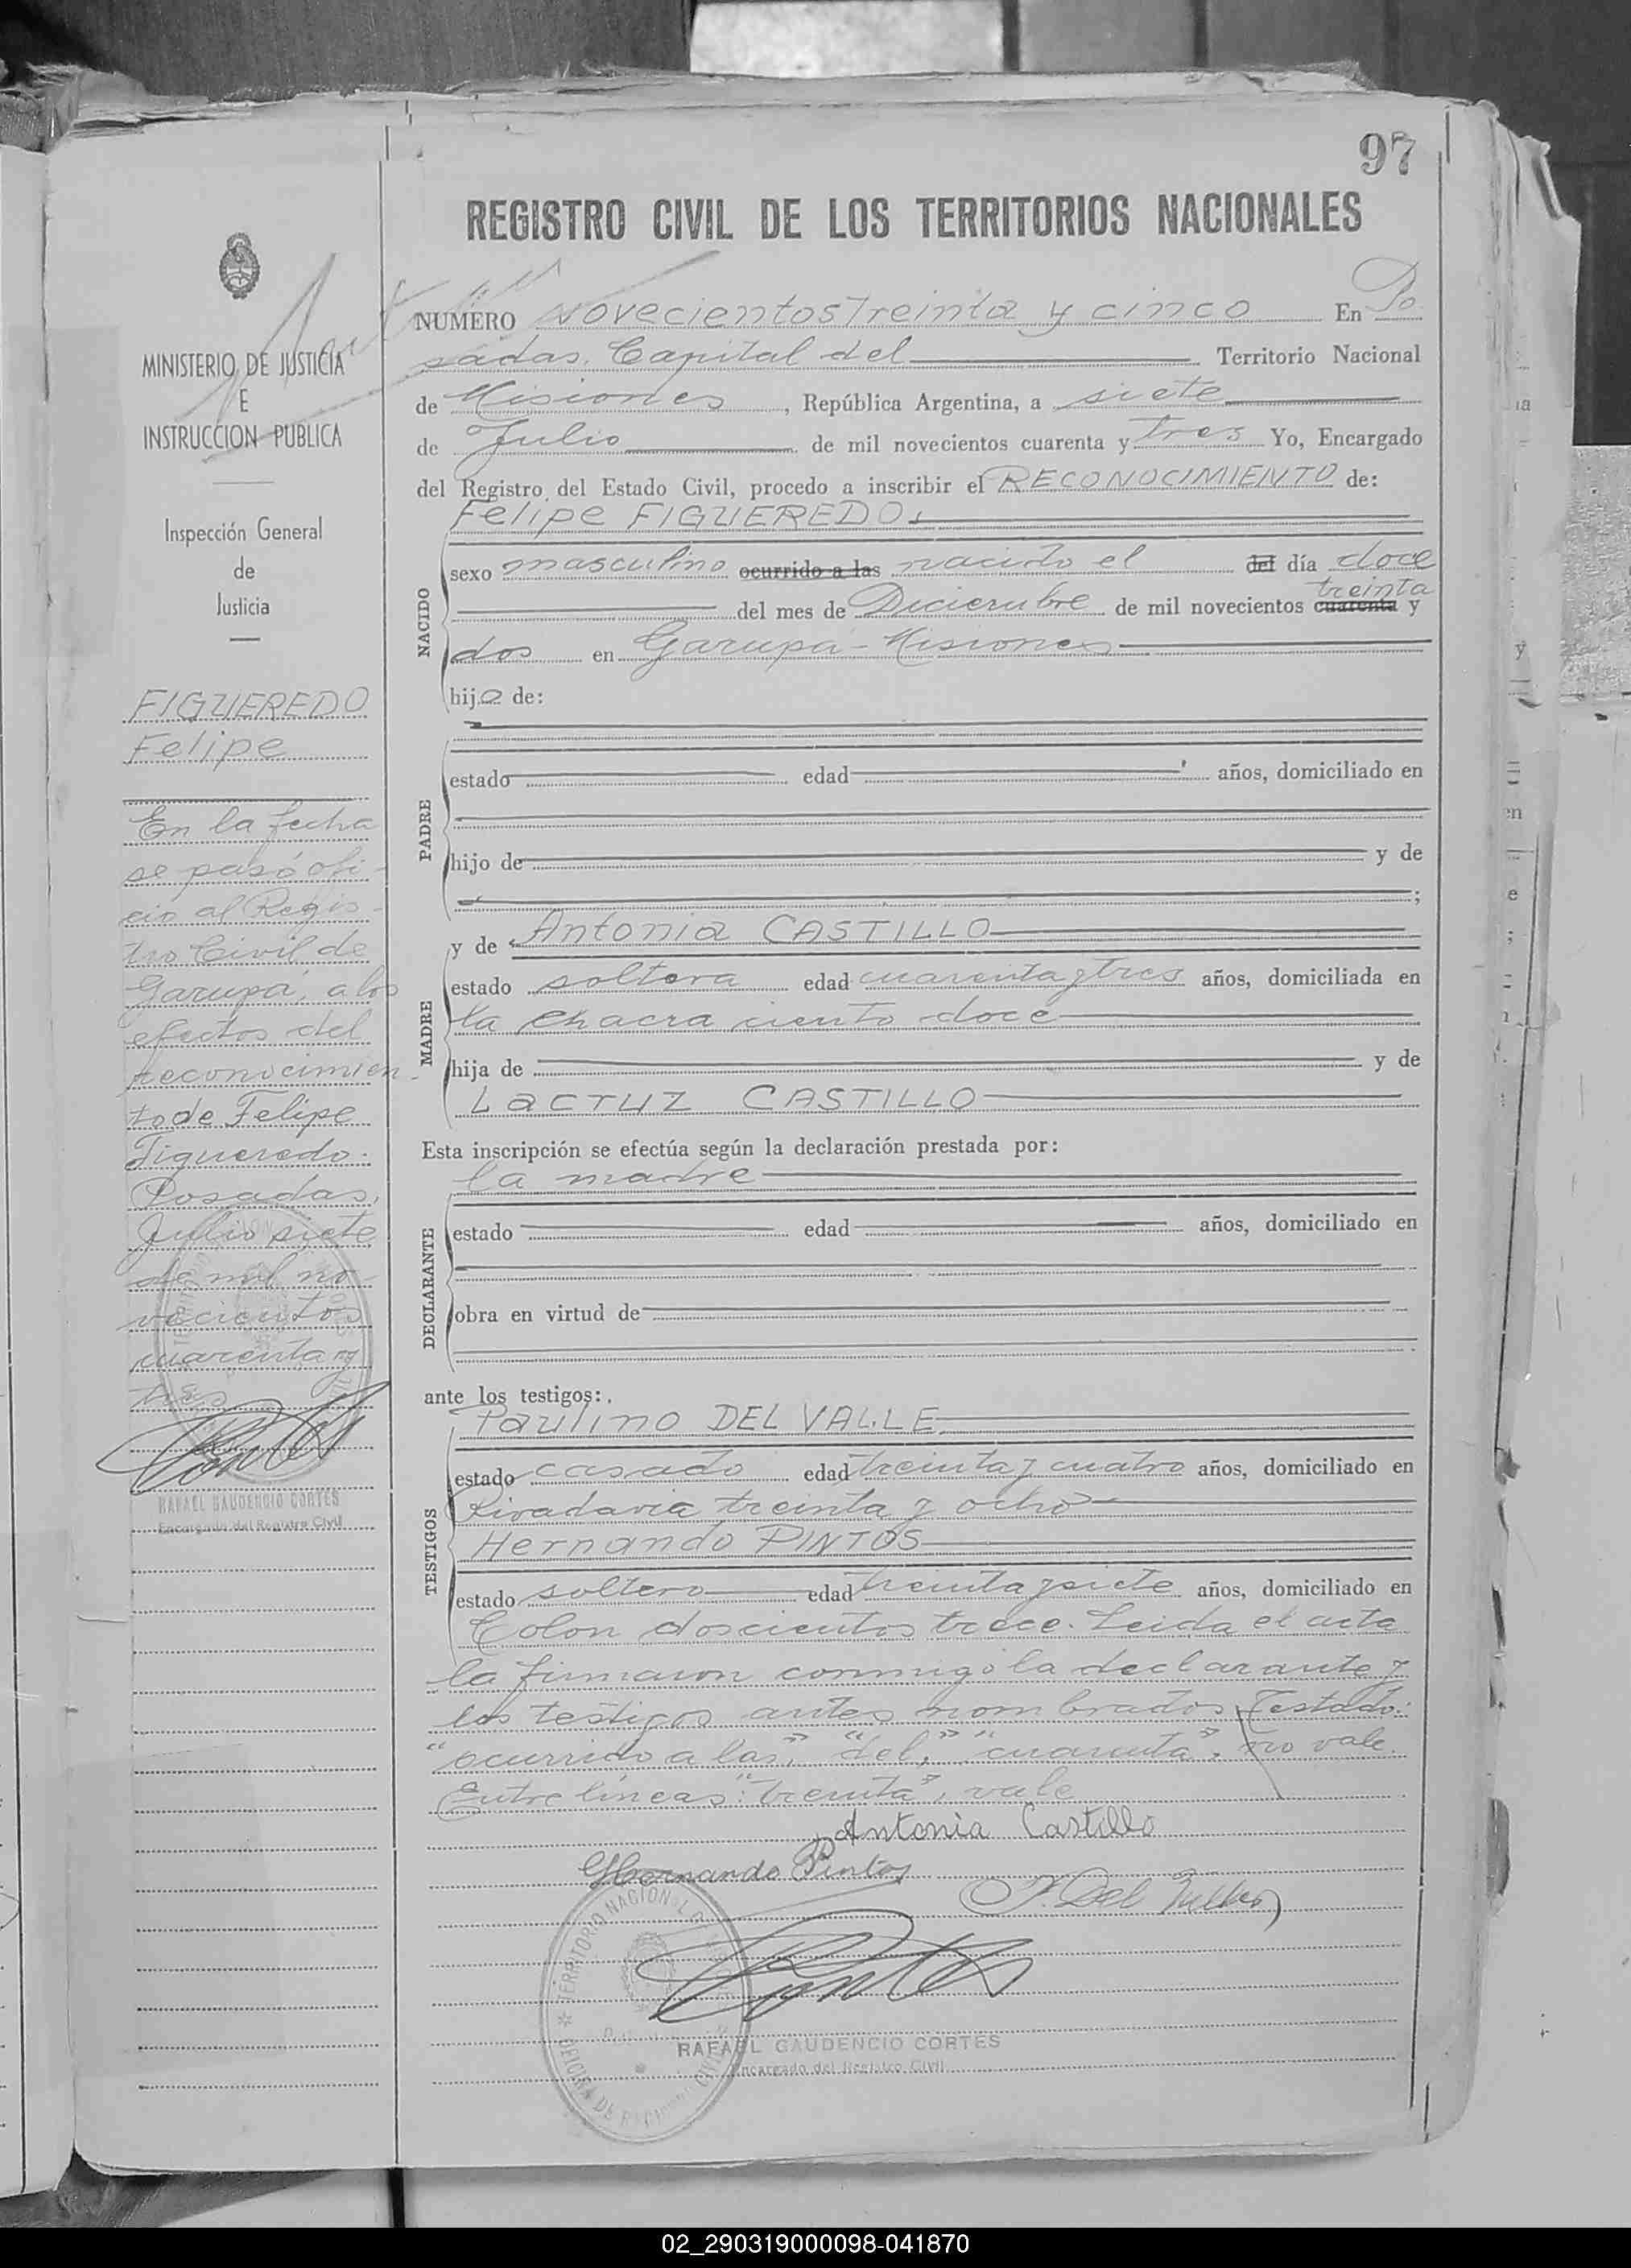 97
REGISTRO CIVIL DE LOS TERRITORIOS NACIONALES
MINISTERIO DE JUSTICIA
E
INSTRUCCION PUBLICA
Inspección General
de
Justicia
FIGUEREDO
Felipe
En la fecha
se pasó ofi-
cio al Regis-
tro Civil de
Garupá, a los
efectos del
reconocimien-
to de Felipe
Figueredo.
Posadas,
Julio siete
de mil no-
vecientos
cuarenta y
tres
RAFAEL GAUDENCIO CORTES
Encargado del Registro Civil
NUMERO Novecientos Treinta y cinco En Po
sadas. Capital del Territorio Nacional
de Misiones, República Argentina, a siete
de Julio de mil novecientos cuarenta y tres Yo, Encargado
del Registro del Estado Civil, procedo a inscribir el RECONOCIMIENTO de:
Felipe FIGUEREDO.
NACIDO
sexo masculino ocurrido a las nacido el del día doce
treinta
del mes de Diciembre de mil novecientos cuarenta y
dos en Garupá - Misiones
hijo de:
PADRE
estado edad años, domiciliado en
hijo de y de
;
MADRE
y de Antonia CASTILLO
estado soltera edad cuarenta y tres años, domiciliada en
la chacra ciento doce
hija de y de
Lacruz CASTILLO
Esta inscripción se efectúa según la declaración prestada por:
la madre
DECLARANTE
estado edad años, domiciliado en
obra en virtud de
ante los testigos:
TESTIGOS
Paulino DEL VALLE
estado casado edad treinta y cuatro años, domiciliado en
Rivadavia treinta y ocho
Hernando PINTOS
estado soltero edad treinta y siete años, domiciliado en
Colon doscientos trece. Leida el acta
la firmaron conmigo la declarante y
los testigos antes nombrados. Testado:
"ocurrido a las", "del," "cuarenta". no vale
Entre líneas: "treinta", vale
Antonia Castillo
Hernando Pintos
P. Del Valle
TERRITORIO NACIONAL
OFICINA DE REGISTRO CIVIL
RAFAEL GAUDENCIO CORTES
Encargado del Registro Civil
02_290319000098-041870